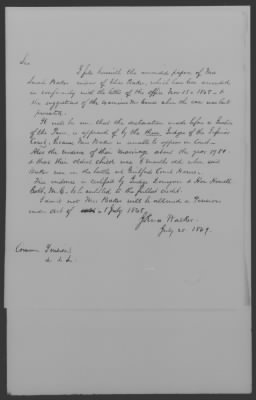 Sir
I file herewith the amended papers of Mrs
Sarah Baker widow of Elias Baker, which have been amended
in conformity with the letter of this office Nov 15th 1848 - &
the suggestions of the examiner Mr Evans when the case was last
presented.
It will be seen that the declaration made before a Justice
of the Peace is approved of by the three Judges of the Inferior
Court, because Mrs Baker is unable to appear in Court -
Also the evidence of their marriage about the year 1780 -
& that their oldest child was 8 months old when said
Baker was in the battle at Guilford Court House.
This evidence is certified by Judge Dougherty & Hon Howell
Cobb, M.C. to be entitled to the fullest credit.
I submit Mrs Baker will be allowed a Pension
under Act of 1 July 1848.
John Walker
July 20 1849.
Comm Pensions